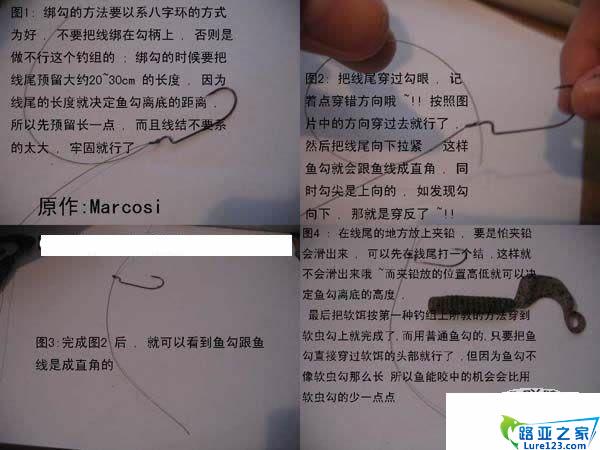 图1: 绑勾的方法要以系八字环的方式
为好 , 不要把线绑在勾柄上 , 否则是
做不行这个钓组的 ; 绑勾的时候要把
线尾预留大约20~30cm 的长度 , 因为
线尾的长度就决定鱼勾离底的距离 ,
所以先预留长一点 , 而且线结不要系
的太大 , 牢固就行了
原作:Marcosi
图2: 把线尾穿过勾眼 , 记
着点穿错方向哦 ~!! 按照图
片中的方向穿过去就行了 ,
然后把线尾向下拉紧 这样
鱼勾就会跟鱼线成直角 , 同
时勾尖是上向的 , 如发现勾
向下 , 那就是穿反了 ~!!
图3:完成图2 后 , 就可以看到鱼勾跟鱼
线是成直角的
图4 : 在线尾的地方放上夹铅 , 要是怕夹铅
会滑出来 , 可以先在线尾打一个结 , 这样就
不会滑出来哦 ~而夹铅放的位置高低就可以决
定鱼勾离底的高度 ,
最后把软饵按第一种钓组上所教的方法穿到
软虫勾上就完成了,而用普通鱼勾的,只要把鱼
勾直接穿过软饵的头部就行了 ,但因为鱼勾不
像软虫勾那么长 所以鱼能咬中的机会会比用
软虫勾的少一点点
路亚之家
Lure123.com